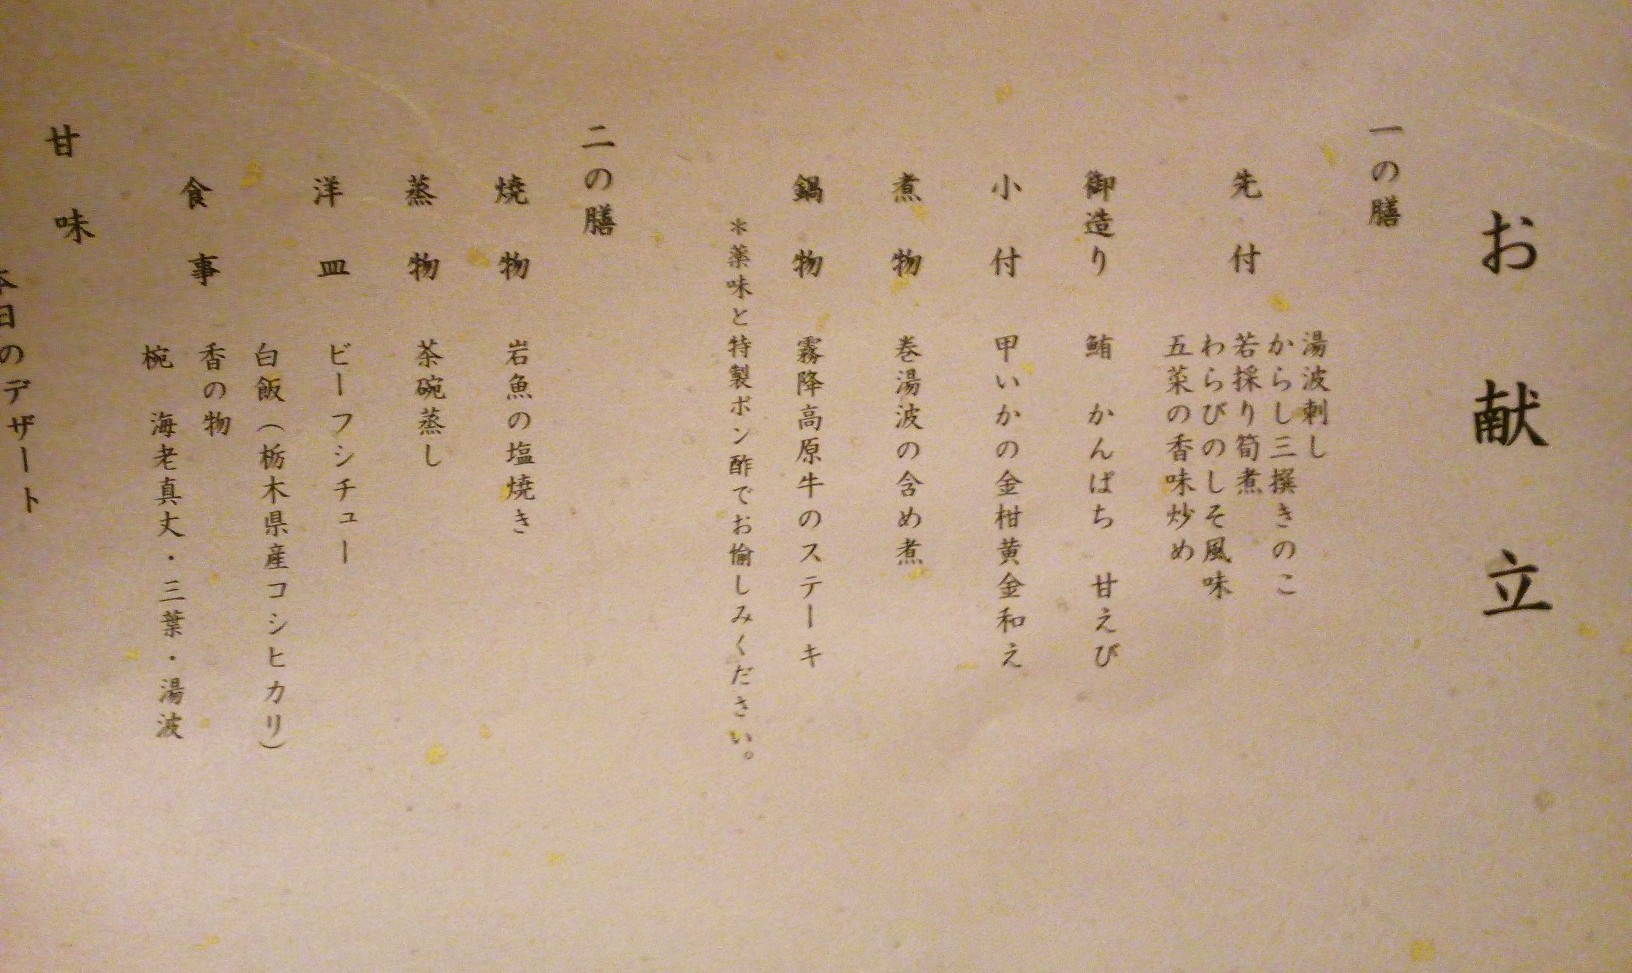 お献立
一の膳
先付
湯波刺し
からし三撰きのこ
若採り筍煮
わらびのしそ風味
五菜の香味炒め
御造り 鮪 かんぱち 甘えび
小付 甲いかの金柑黄金和え
煮物 巻湯波の含め煮
鍋物 霧降高原牛のステーキ
＊薬味と特製ポン酢でお愉しみください。
二の膳
焼物 岩魚の塩焼き
蒸物 茶碗蒸し
洋皿 ビーフシチュー
食事
白飯（栃木県産コシヒカリ）
香の物
椀 海老真丈・三葉・湯波
甘味
本日のデザート